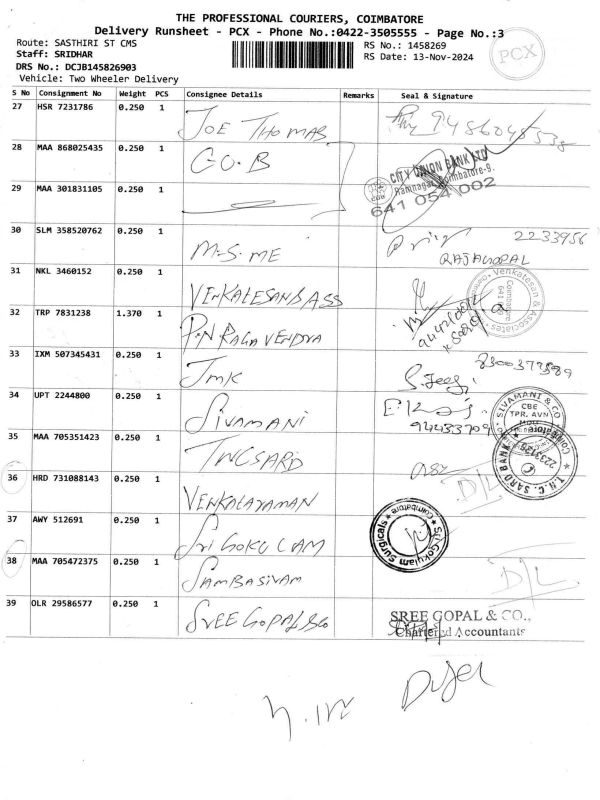 THE PROFESSIONAL COURIERS, COIMBATORE
Delivery Runsheet - PCX - Phone No.:0422-3505555 - Page No.:3
Route: SASTHIRI ST CMS
RS No.: 1458269
PCX
Staff: SRIDHAR
RS Date: 13-Nov-2024
DRS No.: DCJB145826903
Vehicle: Two Wheeler Delivery
S No Consignment No Weight PCS Consignee Details Remarks Seal & Signature
27 HSR 7231786 0.250 1 JOE THOMAS
28 MAA 868025435 0.250 1 G.O.B
CITY UNION BANK LTD
Ramnagar, Coimbatore-9.
641 054 002
29 MAA 301831105 0.250 1
30 SLM 358520762 0.250 1 M.S. ME 2233956
RAJAGOPAL
31 NKL 3460152 0.250 1 VENKATESAN & ASS
Venkatesan & Associates
Coimbatore
641
32 TRP 7831238 1.370 1 P.N RAGAVENDRA
33 IXM 507345431 0.250 1 JMK
34 UPT 2244800 0.250 1 SIVAMANI
SIVAMANI & CO
CBE
TPR. AVN
35 MAA 705351423 0.250 1 TNCSARD
T.N.C. SARD BANK
Coimbatore
36 HRD 731088143 0.250 1 VENKATARAMAN D/L
37 AWY 512691 0.250 1 Sri GOKULAM
Sri Gokulam Surgicals
Coimbatore
38 MAA 705472375 0.250 1 SAMBASIVAM D/L
39 OLR 29586577 0.250 1 SREE GOPAL & CO
SREE GOPAL & CO.,
Chartered Accountants